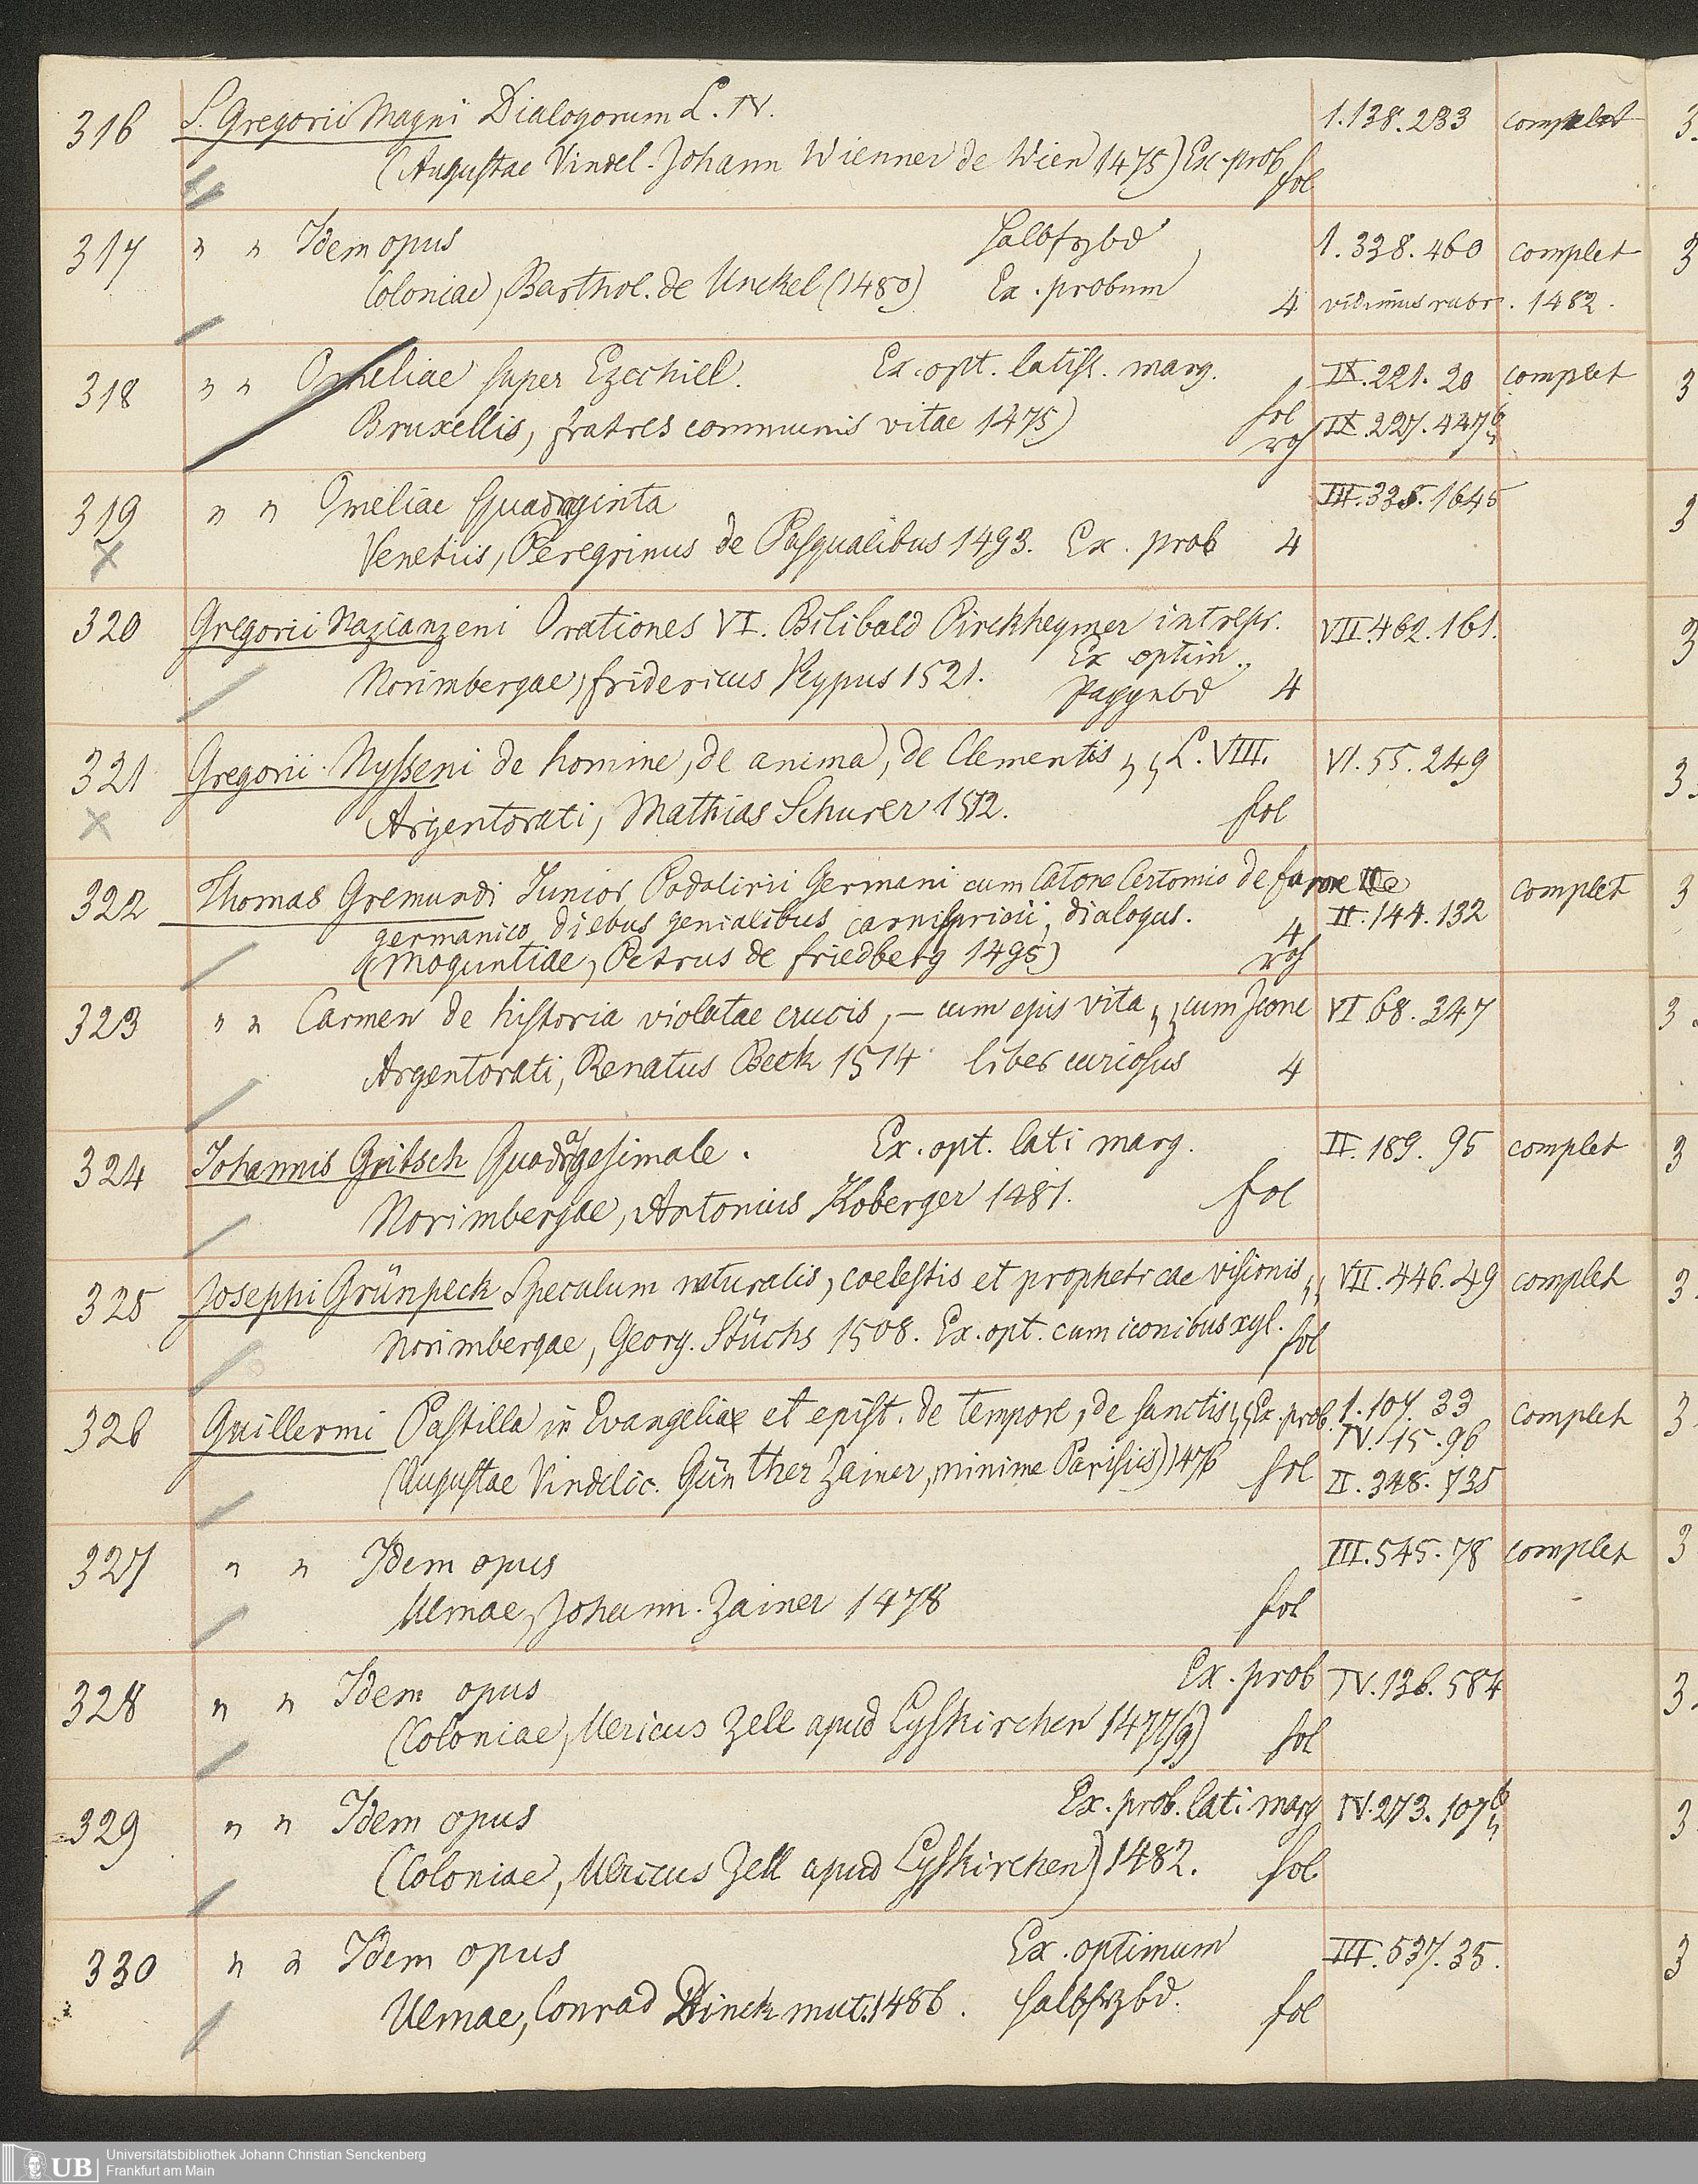 316 S. Gregorii Magni Dialogorum L. IV. 1.138.233 complet
(Augustae Vindel. Johann Wienner de Wien 1475) Ex. prob fol
317 " " Idem opus Halbfrzbd 1.338.460 complet
Coloniae, Barthol. de Unckel (1480) Ex. probum 4 vidimus rubr. 1482.
318 " " Omeliae super Ezechiel. Ex. opt. latiss. marg. IX.221.20 complet
Bruxellis, fratres communis vitae 1475) fol IX.227.447b
319 " " Omeliae Quadraginta III.335.1645
Venetiis, Peregrinus de Pasqualibus 1493. Ex. prob 4
320 Gregorii Nazianzeni Orationes VI. Bilibald Pirckheymer interpr. VII.462.161.
Ex optim.
Norimbergae, fridericus Peypus 1521. Pappnbd 4
321 Gregorii Nysseni de homine, de anima, de Elementis " L. VIII. VI.55.249
Argentorati, Mathias Schurer 1512. fol
322 Thomas Gremundi Junior Podalirii Germani cum Catone Certomio de furore complet
germanico diebus genialibus carnisprivii, dialogus. 4 II.144.132
(Moguntiae, Petrus de Friedberg 1495)
323 " " Carmen de historia violatae crucis, – cum ejus vita " cum Icone VI 68.347
Argentorati, Renatus Beck 1514 liber curiosus 4
324 Johannis Gritsch Quadragesimale. Ex. opt. lati marg. II.189.95 complet
Norimbergae, Antonius Koberger 1481. fol
325 Josephi Grünpeck Speculum naturalis, coelestis et propheticae visionis " VII.446.49 complet
Norimbergae, Georg. Stüchs 1508. Ex. opt. cum iconibus xyl. fol
326 Guillermi Postilla in Evangelia et epist. de tempore, de sanctis " Ex. prob. 1.107.33 complet
IV.15.96
(Augustae Vindelic. Günther Zainer, minime Parisiis) 1476 fol II.348.735
327 " " Idem opus III.545.78 complet
Ulmae, Johann. Zainer 1478 fol
328 " " Idem opus Ex. prob IV.136.584
(Coloniae, Ulricus Zell apud Lyskirchen 1477/9) fol
329 " " Idem opus Ex. prob. lati marg IV.273.107b
(Coloniae, Ulricus Zell apud Lyskirchen) 1482. fol.
330 " " Idem opus Ex. optimum III.537.35.
Ulmae, Conrad Dinckmut. 1486. Halbfrzbd. fol
UB Universitätsbibliothek Johann Christian Senckenberg
Frankfurt am Main